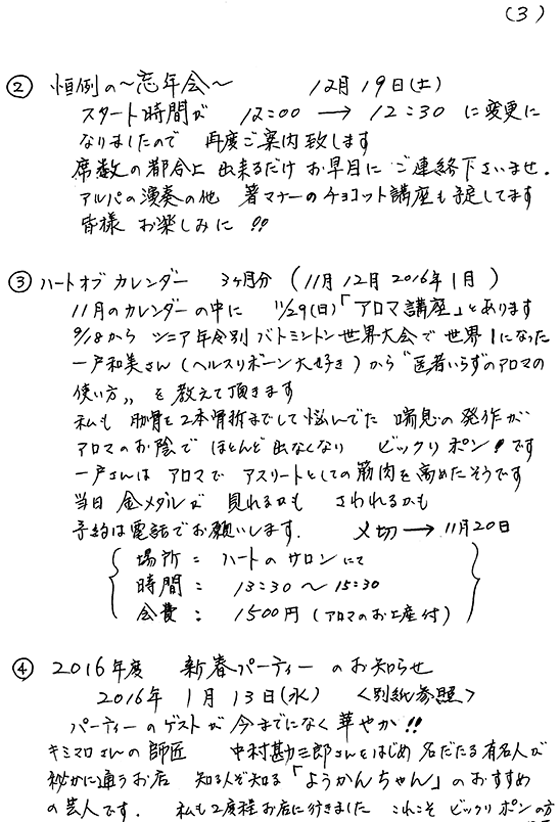 (3)
② 恒例の～忘年会～ 12月19日(土)
スタート時間が 12:00 → 12:30 に変更に
なりましたので 再度ご案内致します
席数の都合上 出来るだけ お早目に ご連絡下さいませ.
アルパの演奏の他 箸マナーのチョコット講座も予定してます
皆様 お楽しみに!!
③ ハートオブカレンダー 3ヶ月分 (11月 12月 2016年1月)
11月のカレンダーの中に 11/29(日)「アロマ講座」とあります
9/18から シニア年令別 バトミントン世界大会で 世界1になった
一戸和美さん(ヘルスリボーン大好き)から“医者いらずのアロマの
使い方„ を 教えて頂きます
私も 肋骨を2本骨折までして悩んでた 喘息の発作が
アロマのお陰で ほとんど出なくなり ビックリポン!です
一戸さんは アロマで アスリートとしての筋肉を高めたそうです
当日 金メダルが 見れるかも さわれるかも
予約は電話でお願いします. 〆切→11月20日
場所: ハートのサロンにて
時間: 13:30～15:30
会費: 1500円(アロマのお土産付)
④ 2016年度 新春パーティーのお知らせ
2016年 1月13日(水) <別紙参照>
パーティーのゲストが今までになく華やか!!
キミマロさんの師匠 中村勘三郎さんをはじめ 名だたる有名人が
秘かに通うお店 知る人ぞ知る「ようかんちゃん」のおすすめ
の芸人です. 私も2度程お店に行きました これこそ ビックリポンの方